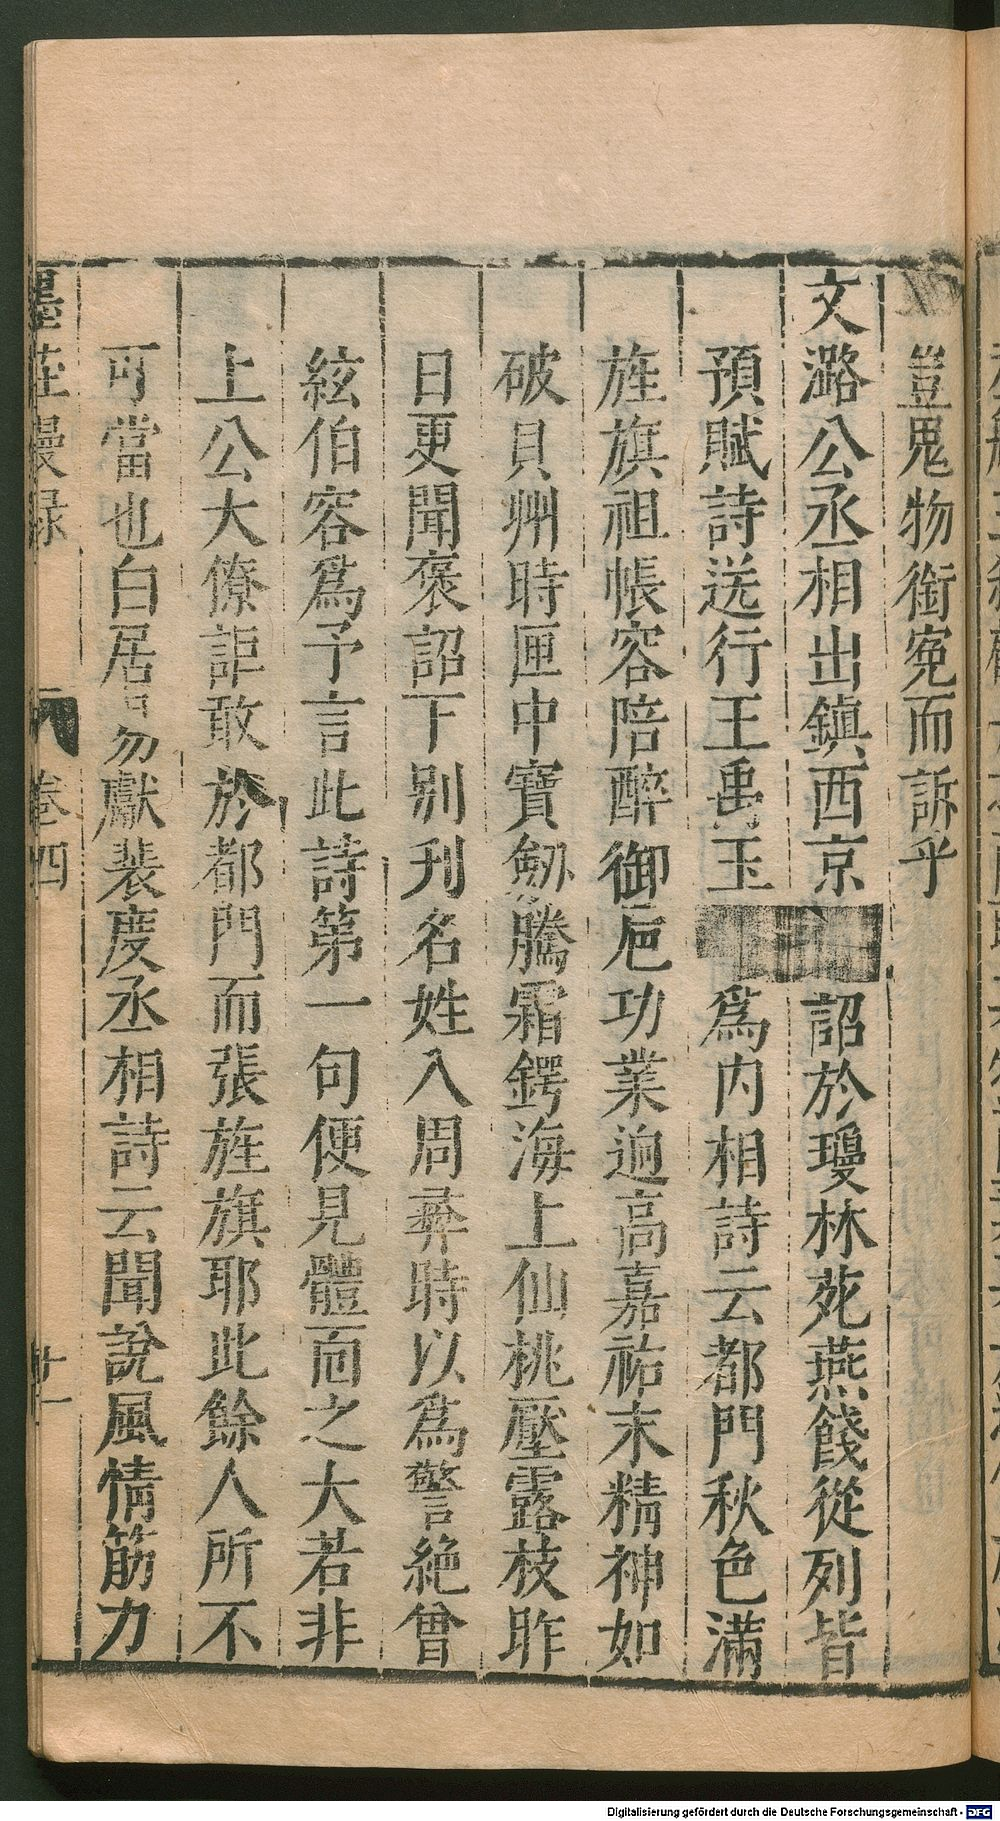 豈鬼物銜寃而訴乎
文潞公丞相出鎮西京詔於瓊林苑燕餞從列皆
預賦詩送行王禹玉爲内相詩云都門秋色滿
旌旗祖帳容陪醉御巵功業迥高嘉祐末精神如
破貝州時匣中寶劒騰霜鍔海上仙桃壓露枝昨
日更聞褒詔下别刋名姓入周彛時以爲警絶曾
紘伯容爲予言此詩第一句便見體面之大若非
上公大僚詎敢於都門而張旌旗耶此餘人所不
可當也白居易獻裴度丞相詩云聞說風情筋力
墨莊漫録
卷四
廿一
Digitalisierung gefördert durch die Deutsche Forschungsgemeinschaft - DFG